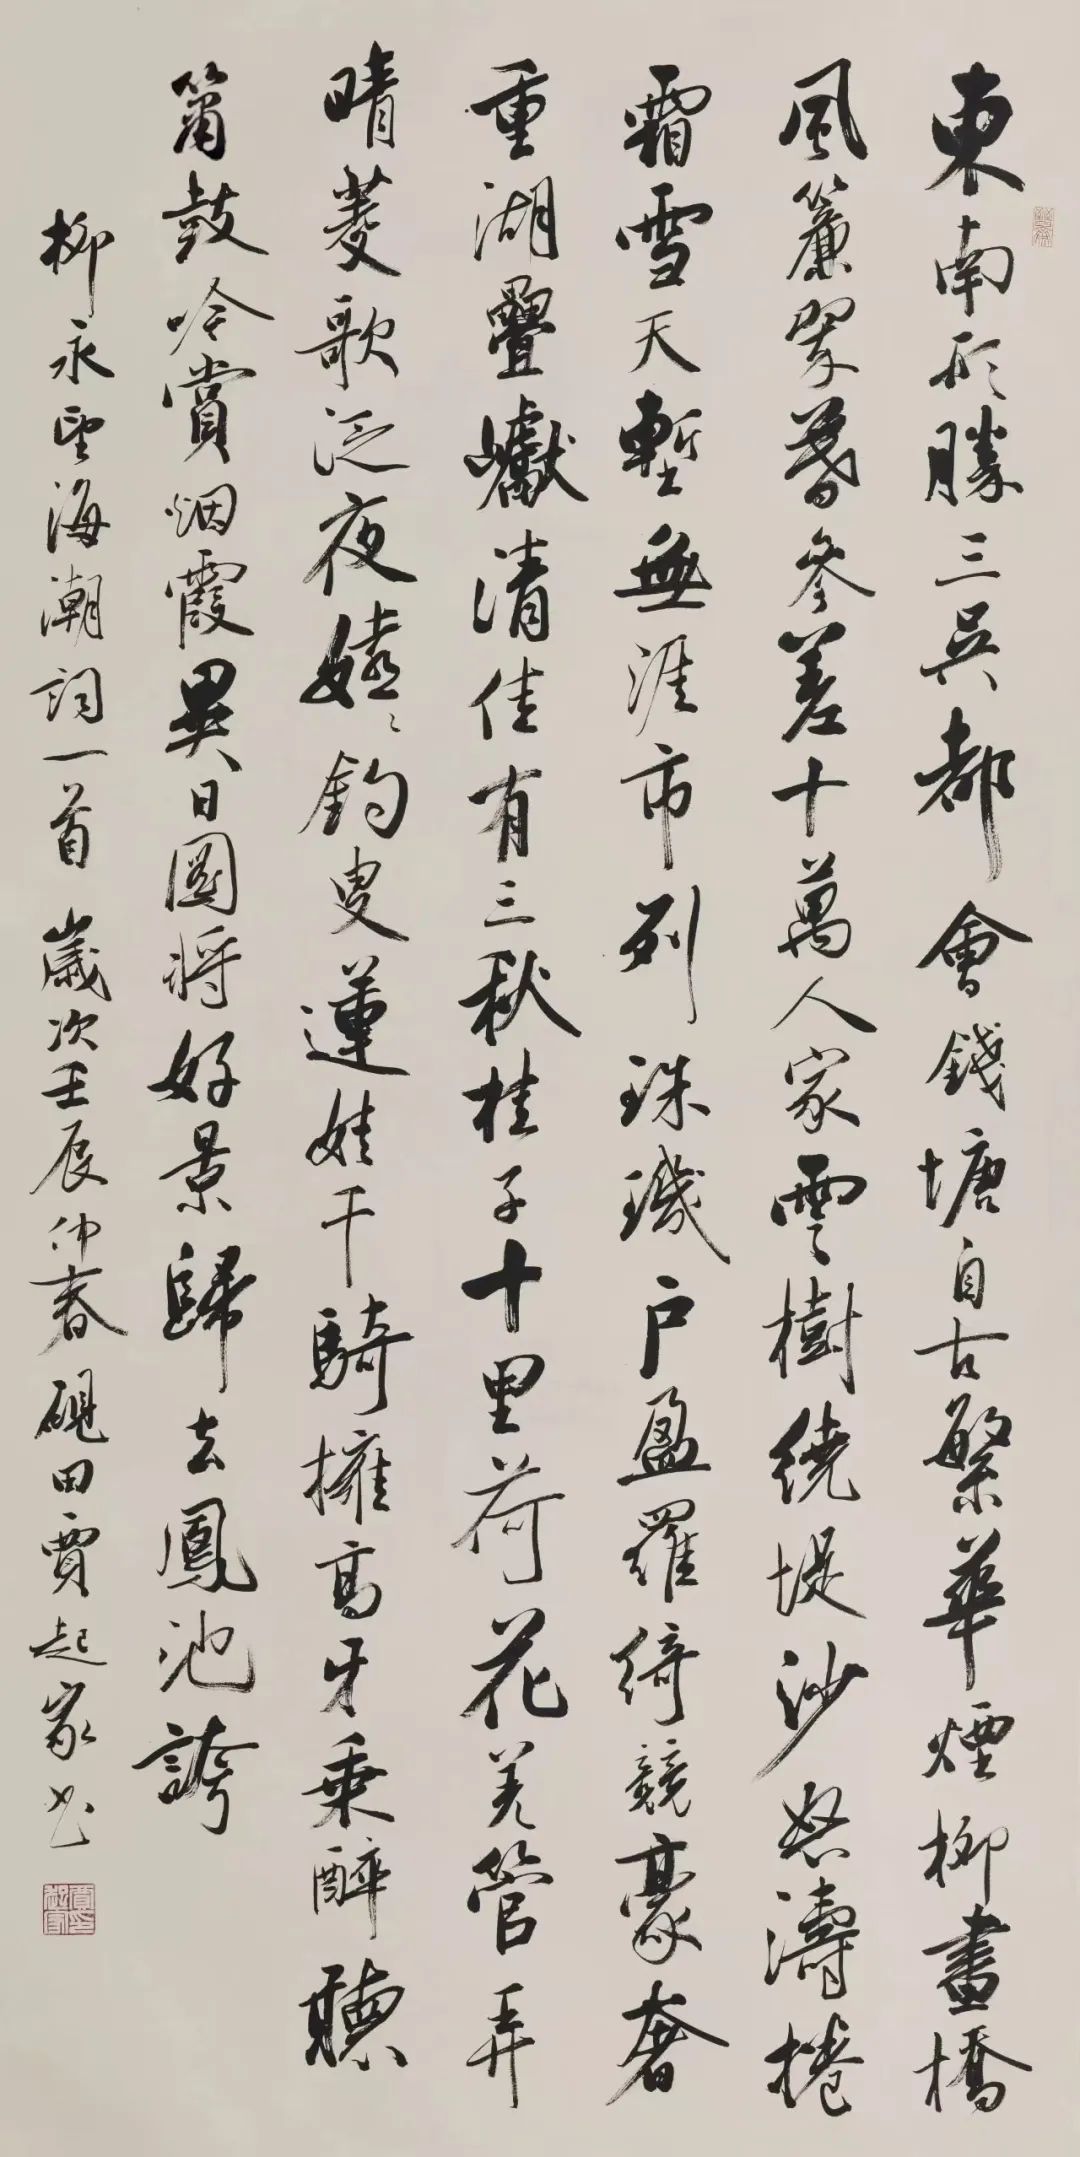 東南形勝三吳都會錢塘自古繁華煙柳畫橋
風簾翠幕參差十萬人家雲樹繞堤沙怒濤捲
霜雪天塹無涯市列珠璣户盈羅綺競豪奢
重湖疊巘清佳有三秋桂子十里荷花羌管弄
晴菱歌泛夜嬉〻釣叟蓮娃千騎擁高牙乘醉聽
簫鼓吟賞烟霞異日圖將好景歸去鳳池誇
柳永望海潮詞一首 歲次壬辰仲春硯田賈起家书